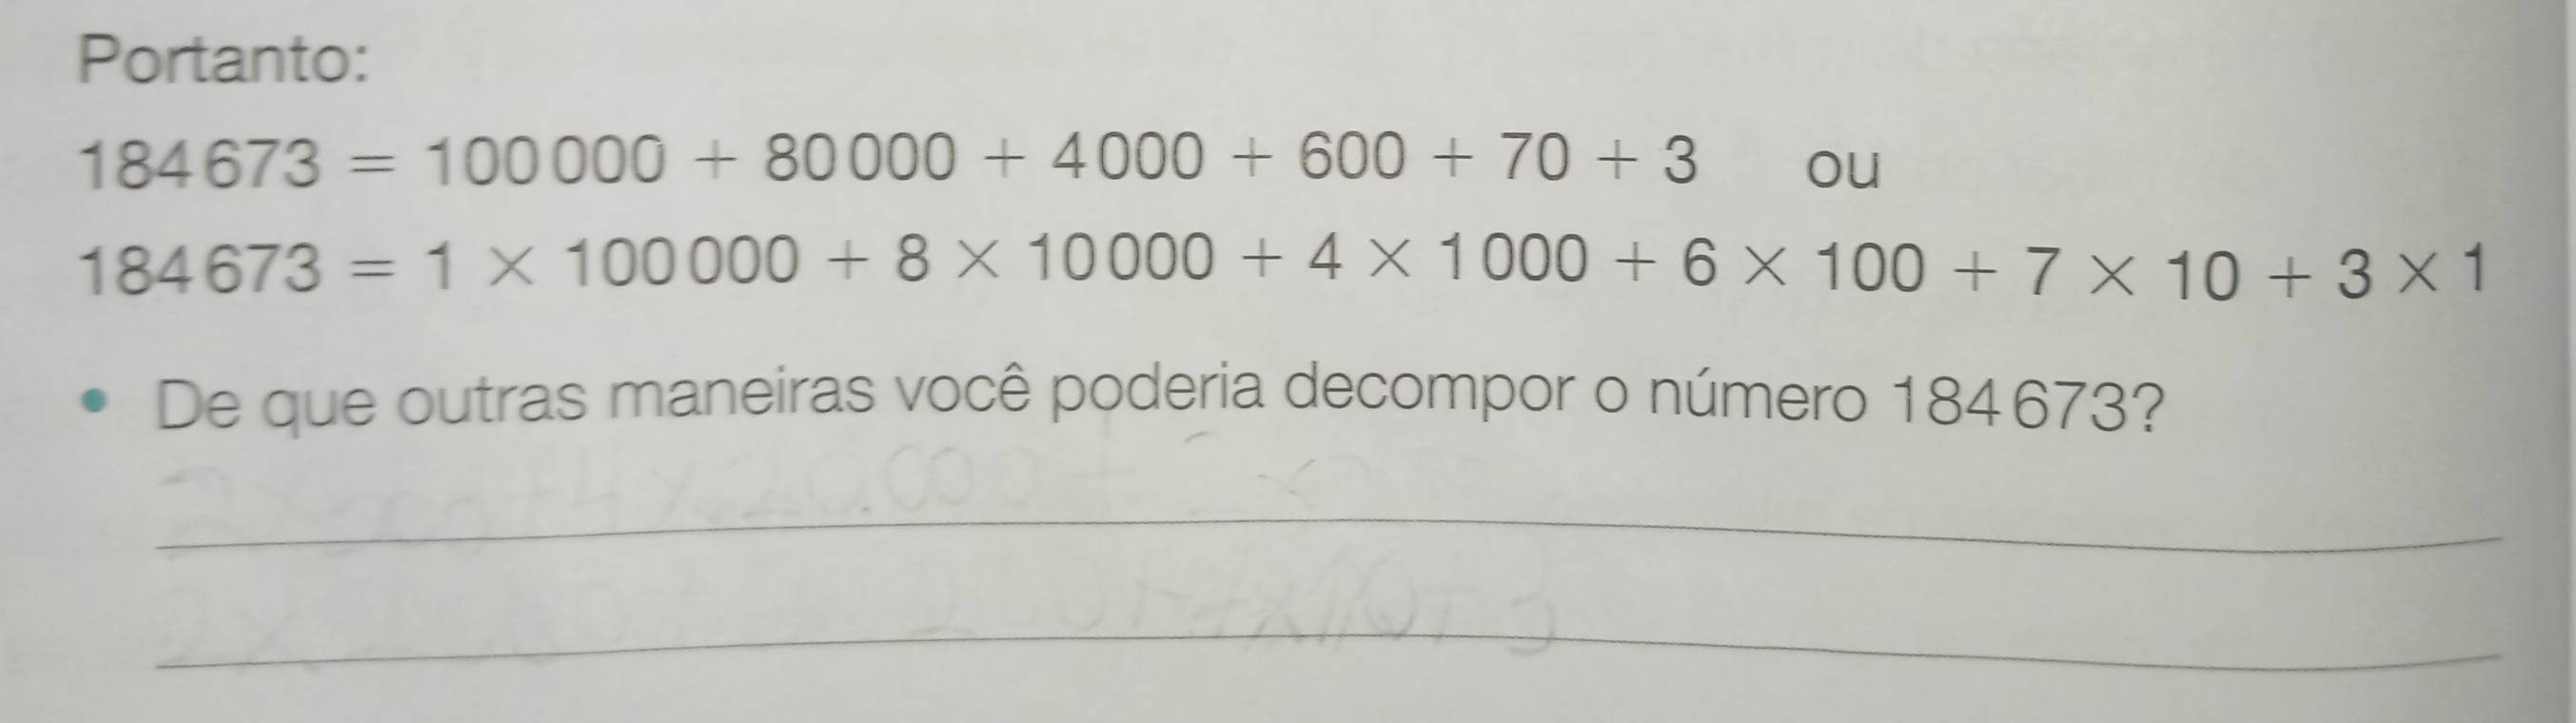 Portanto:
184 673 = 100 000 + 80 000 + 4 000 + 600 + 70 + 3 ou
184 673 = 1 × 100 000 + 8 × 10 000 + 4 × 1 000 + 6 × 100 + 7 × 10 + 3 × 1
• De que outras maneiras você poderia decompor o número 184 673?